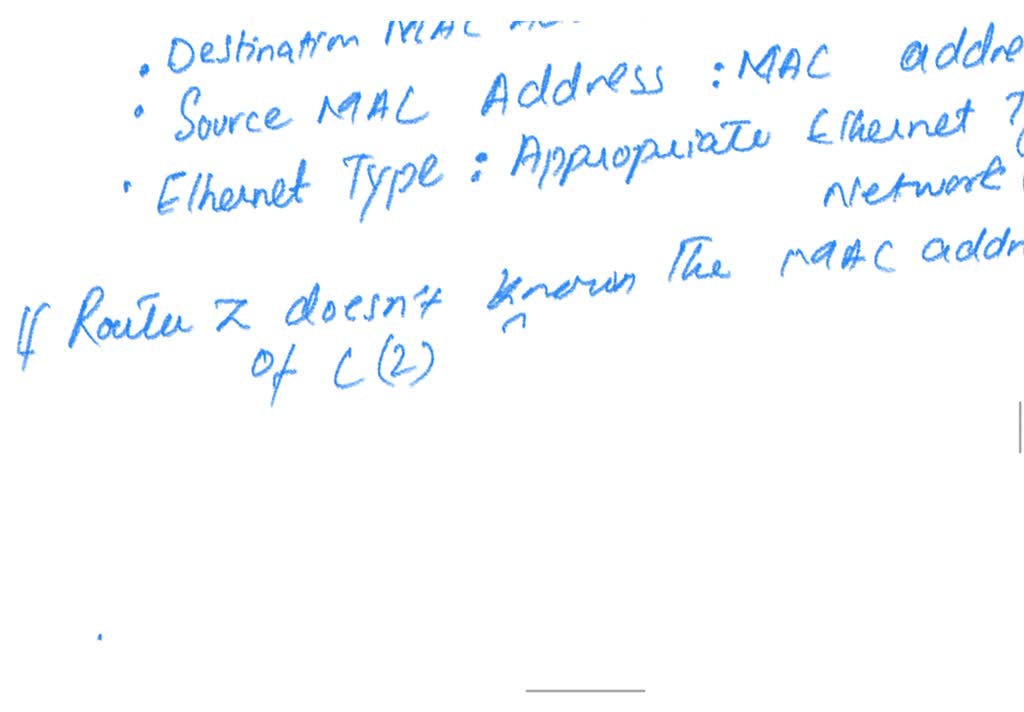 • Destination MAC
• Source MAC Address : MAC addre
• Ethernet Type : Appropriate Ethernet
Network
If Router Z doesn't known the MAC addr
of C (2)